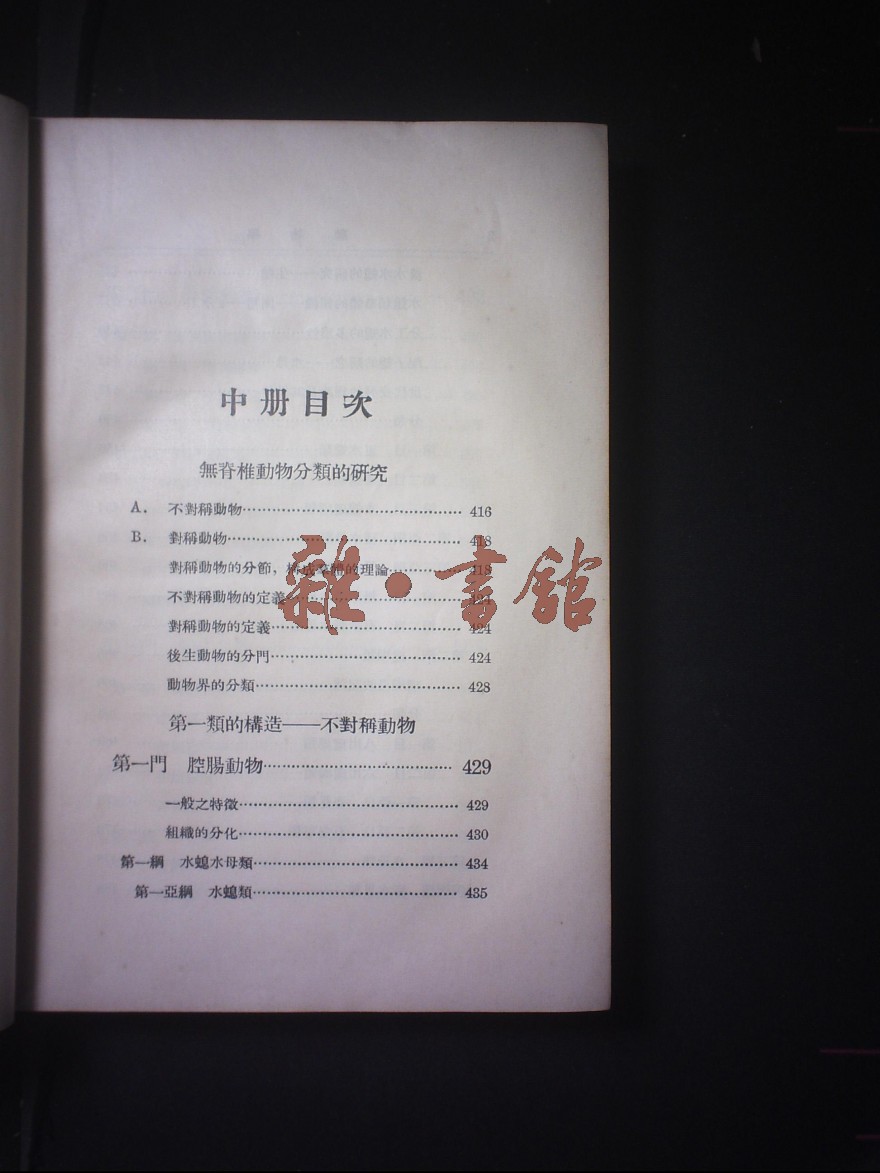 中册目次
無脊椎動物分類的研究
A. 不對稱動物 416
B. 對稱動物 418
對稱動物的分節，構成羣體的理論 418
不對稱動物的定義 424
對稱動物的定義 424
後生動物的分門 424
動物界的分類 428
第一類的構造——不對稱動物
第一門 腔腸動物 429
一般之特徵 429
組織的分化 430
第一綱 水螅水母類 434
第一亞綱 水螅類 435
雜·書館